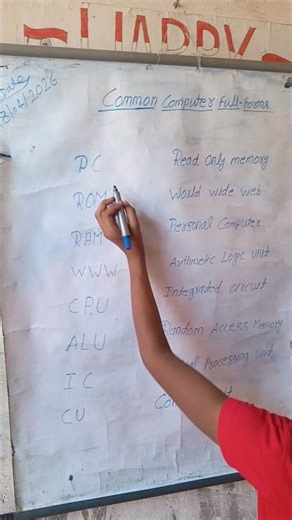 HAPPY
Date
8/04/2026
Common Computer Full-forms
PC Read Only memory
ROM World wide web
RAM Personal Computer
WWW Arithmetic Logic unit
CPU Integrated circuit
ALU Random Access Memory
IC Processing Unit
CU